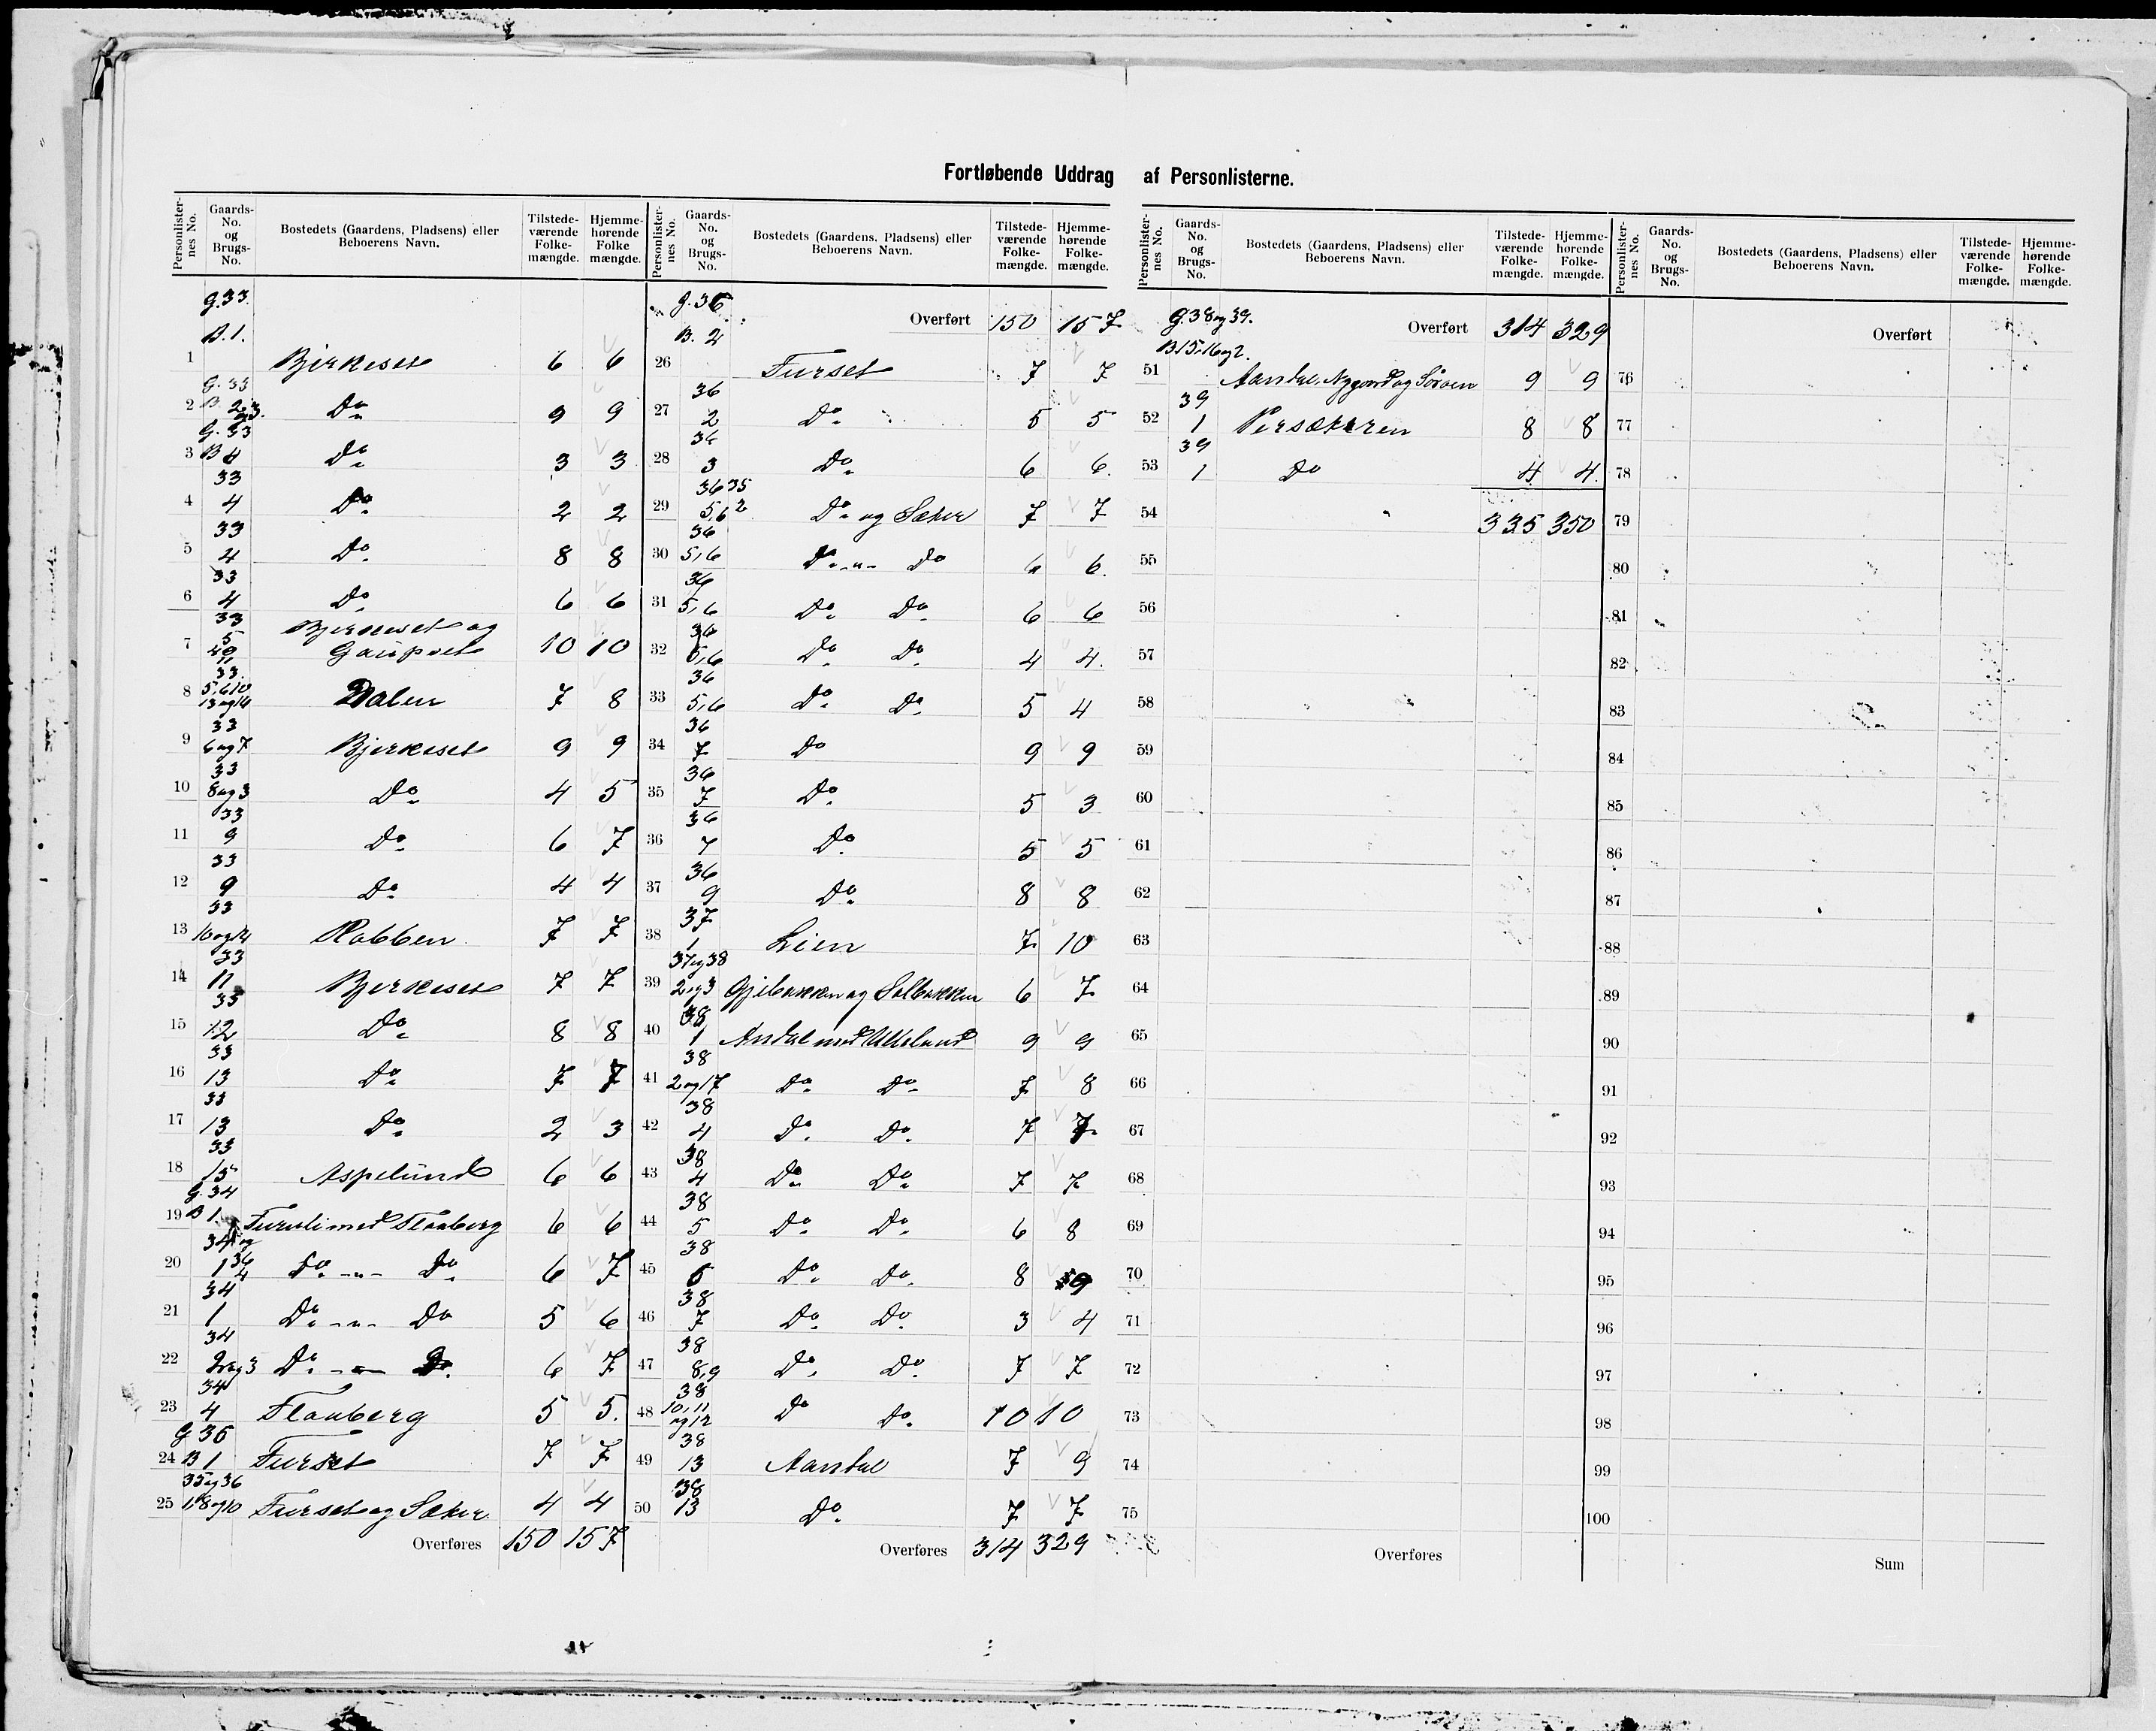 Fortløbende Uddrag af Personlisterne.
Personlister-nes No. | Gaards-No. og Brugs-No. | Bostedets (Gaardens, Pladsens) eller Beboerens Navn. | Tilstede-værende Folke-mængde. | Hjemme-hørende Folke mængde.
1 | G. 33. B. 1. | Bjerkeset | 6 | 6
2 | G. 33 B. 2 og 3. | Do | 9 | 9
3 | G. 33 B 4 | Do | 3 | 3
4 | 33 4 | Do | 2 | 2
5 | 33 4 | Do | 8 | 8
6 | 33 4 | Do | 6 | 6
7 | 33 5 | Bjerkeset og Gaupset | 10 | 10
8 | 33. 5,6,10 13 og 14 | Dalen | 7 | 8
9 | 33 6 og 7 | Bjerkeset | 9 | 9
10 | 33 8 og 3 | Do | 4 | 5
11 | 33 9 | Do | 6 | 7
12 | 33 9 | Do | 4 | 4
13 | 33 | Rabben | 7 | 7
14 | 33 11 | Bjerkeset | 7 | 7
15 | 33 12 | Do | 8 | 8
16 | 33 13 | Do | 7 | 7
17 | 33 13 | Do | 2 | 3
18 | 33 15 | Aspelund | 6 | 6
19 | G. 34 B 1 | Furuli med Flaaberg | 6 | 6
20 | 34 og 36 1 4 | Do -„- Do | 6 | 7
21 | 34 1 | Do -„- Do | 5 | 6
22 | 34 2 og 3 | Do -„- Do | 6 | 7
23 | 34 4 | Flaaberg | 5 | 5.
24 | G 35 B 1 | Furset | 7 | 7
25 | 35 og 36 1, 8 og 10 | Furset og Sæter | 4 | 4
Overføres | 150 | 157
Personlister-nes No. | Gaards-No. og Brugs-No. | Bostedets (Gaardens, Pladsens) eller Beboerens Navn. | Tilstede-værende Folke-mængde. | Hjemme-hørende Folke-mængde.
Overført | 150 | 157
26 | G. 36 B. 2 | Furset | 7 | 7
27 | 36 2 | Do | 5 | 5
28 | 36 3 | Do | 6 | 6
29 | 36 35 5,6 2 | Do og Sæter | 7 | 7
30 | 36 5,6 | Do -„- Do | 6 | 6.
31 | 36 5,6 | Do Do | 6 | 6
32 | 36 5,6 | Do Do | 4 | 4.
33 | 36 5,6 | Do Do | 5 | 4
34 | 36 7 | Do | 9 | 9
35 | 36 7 | Do | 5 | 3
36 | 36 7 | Do | 5 | 5
37 | 36 9 | Do | 8 | 8
38 | 37 1 | Lien | 7 | 10
39 | 37 og 38 2 og 3 | Gjelbakken og Solbakken | 6 | 7
40 | 38 1 | Aasdal med | 9 | 9
41 | 38 2 og 17 | Do Do | 7 | 8
42 | 38 4 | Do Do | 7 | 7
43 | 38 4 | Do Do | 7 | 7
44 | 38 5 | Do Do | 6 | 8
45 | 38 6 | Do Do | 8 | 9
46 | 38 7 | Do Do | 3 | 4
47 | 38 8,9 | Do Do | 7 | 7
48 | 38 10,11 og 12 | Do Do | 10 | 10
49 | 38 13 | Aansdal | 7 | 9
50 | 38 13 | Do | 7 | 7
Overføres | 314 | 329
Personlister-nes No. | Gaards-No. og Brugs-No. | Bostedets (Gaardens, Pladsens) eller Beboerens Navn. | Tilstede-værende Folke-mængde. | Hjemme-hørende Folke-mængde.
Overført | 314 | 329
51 | G. 38 og 39. B 15, 16 og 2. | Aansdal, Nygaard og | 9 | 9
52 | 39 1 | | 8 | 8
53 | 39 1 | Do | 4 | 4.
54 | 335 | 350
55
56
57
58
59
60
61
62
63
64
65
66
67
68
69
70
71
72
73
74
75
Overføres
Personlister-nes No. | Gaards-No. og Brugs-No. | Bostedets (Gaardens, Pladsens) eller Beboerens Navn. | Tilstede-værende Folke-mængde. | Hjemme-hørende Folke-mængde.
Overført
76
77
78
79
80
81
82
83
84
85
86
87
88
89
90
91
92
93
94
95
96
97
98
99
100
Sum